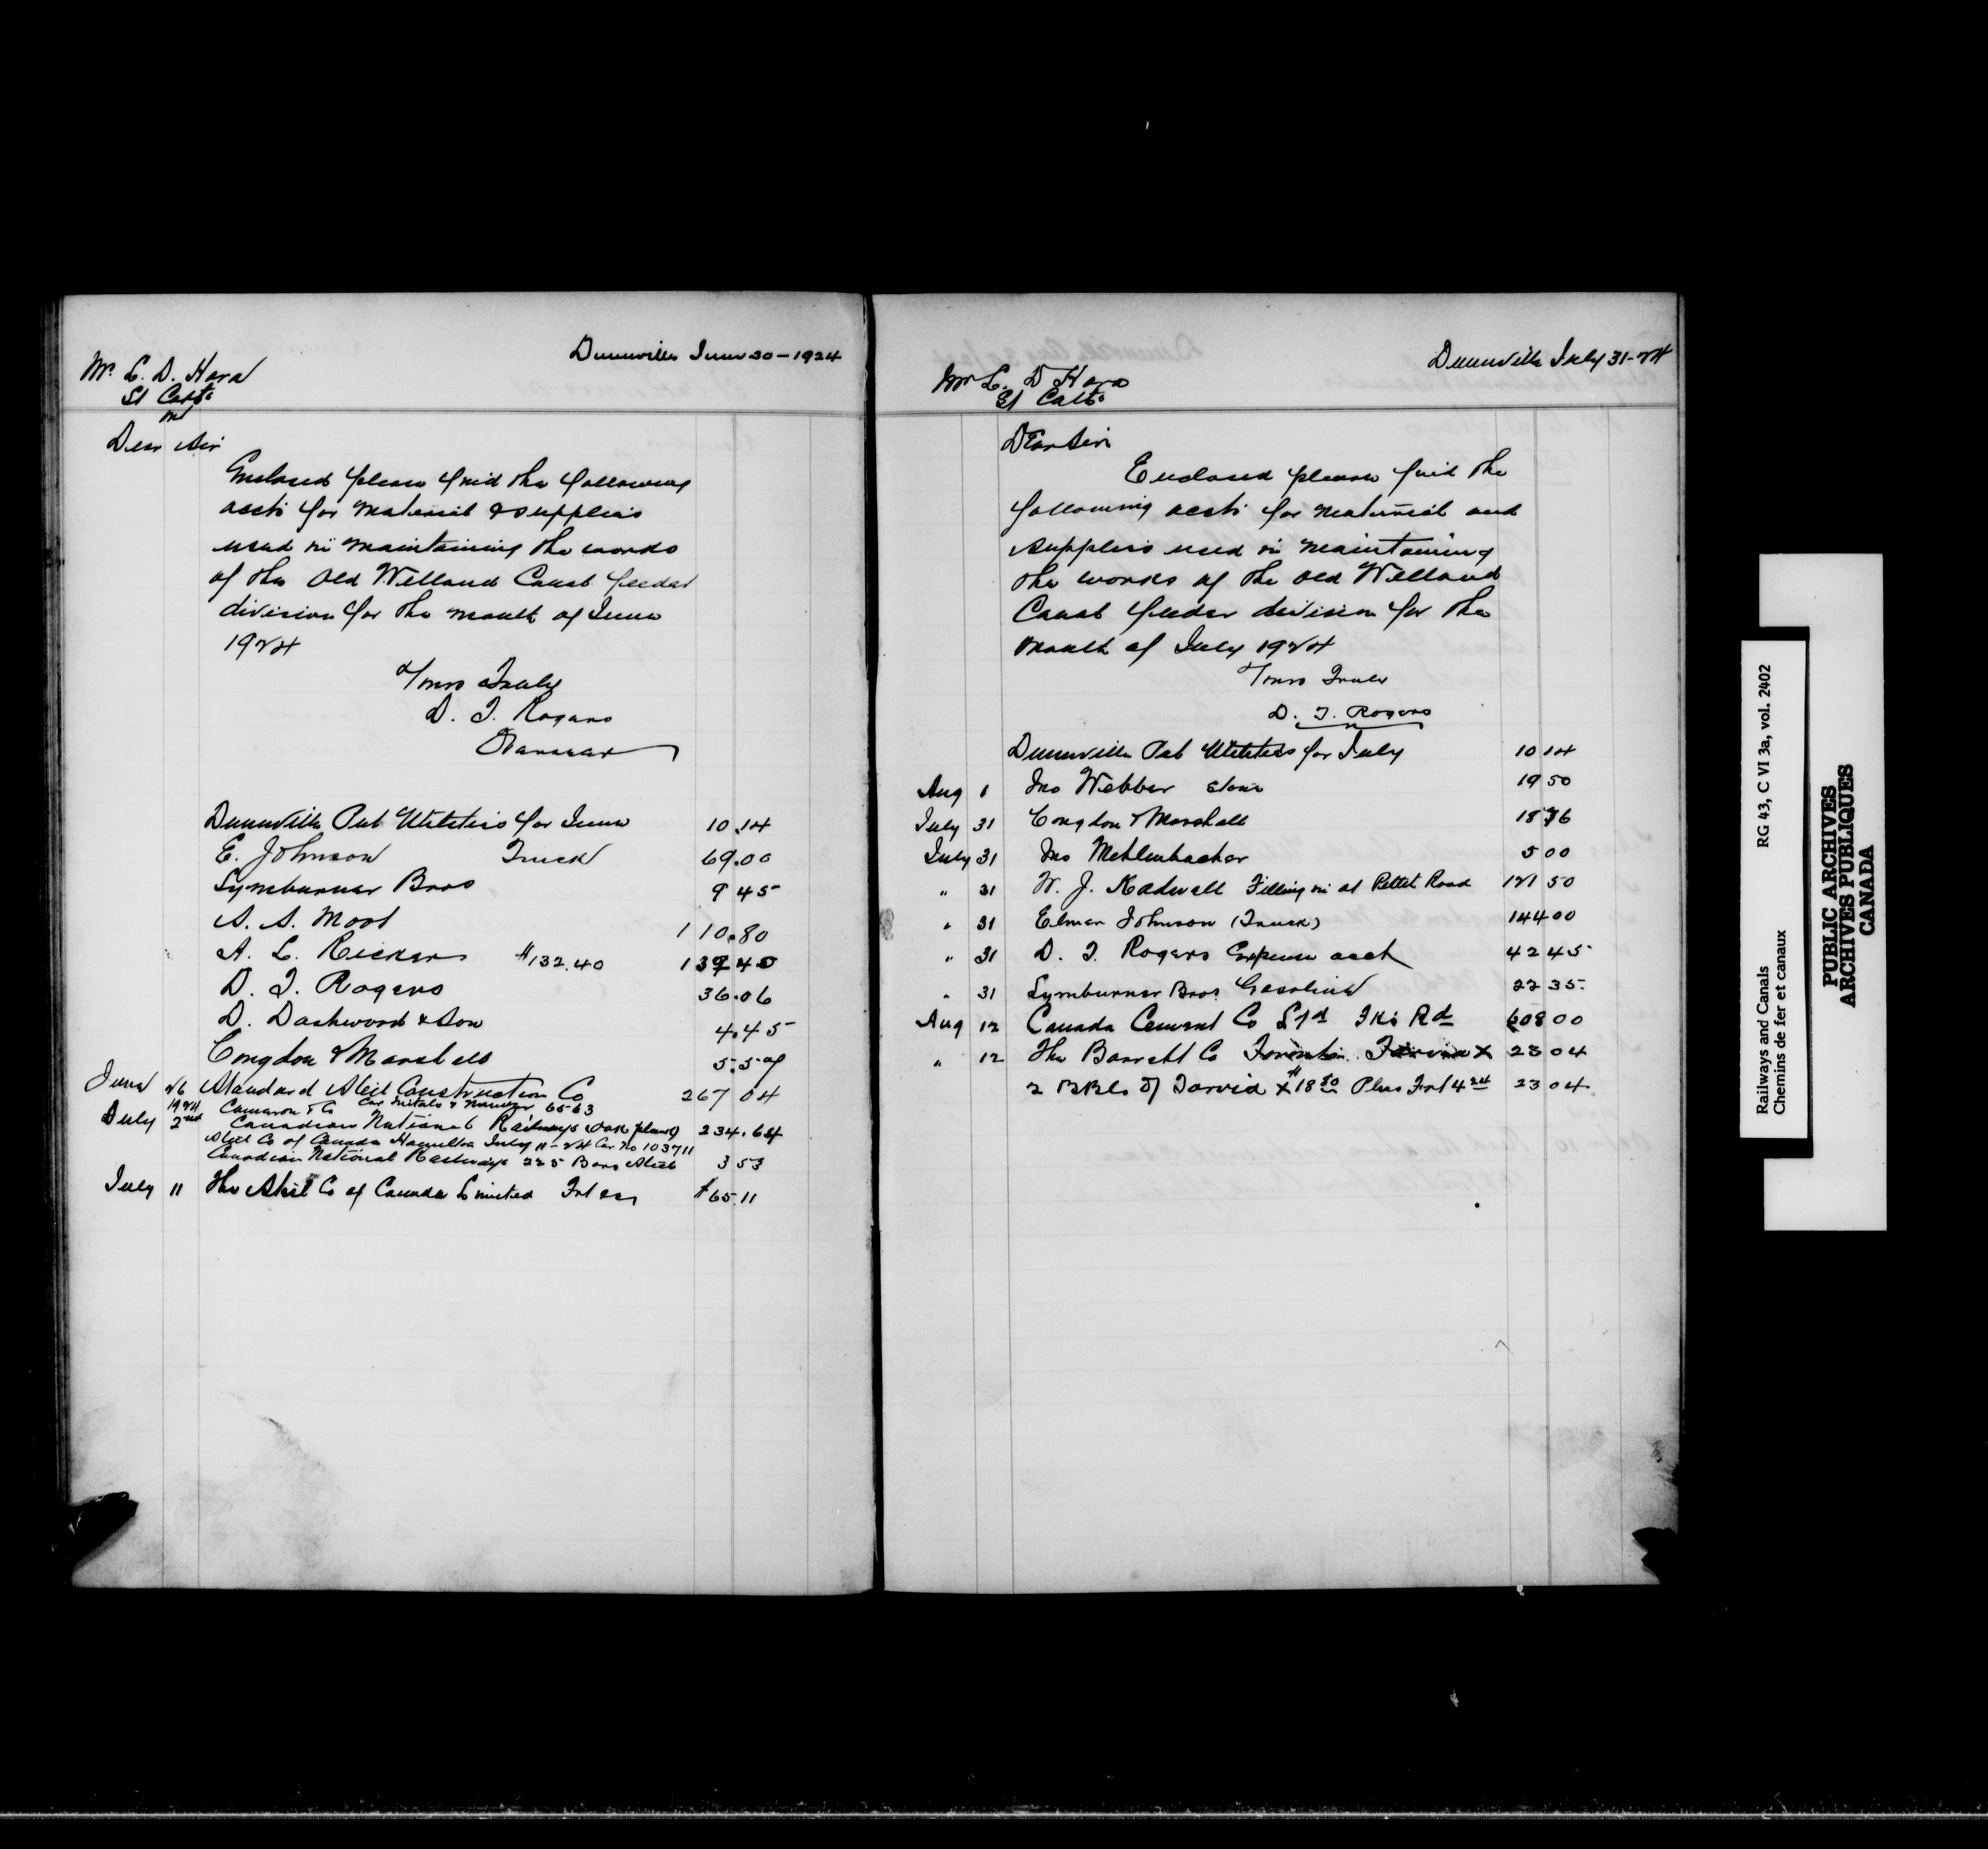 Dunnville June 30-1924
Mr. L. D. Hara
St Cath's
Ont
Dear Sir
Enclosed please find the following
accts for material & supplies
used in maintaining the works
of the Old Welland Canal feeder
division for the month of June
1924
Yours Truly
D. T. Rogers
Dunnville Pub Utilities for June 10.14
E. Johnson Truck 69.00
Lymburner Bros 9 45
A. A. Moot 110.80
A. L. Rickers $132.40 132 40
D. T. Rogers 36.06
D. Dashwood & Son 4.45
Congdon & Marshall 5.59
June 26 Standard Steel Construction Co 267 04
1924 Cameron & Co Car Initials & Number 6563
July 2nd Canadian National Railways (Oak plank) 234.64
Steel Co of Canada Hamilton July 11-24 Car No 103711
Canadian National Railways 225 Bars Steel 3 53
July 11 The Steel Co of Canada Limited $65.11
Dunnville July 31-24
Mr L. D Hara
St Cath's
Dear Sir
Enclosed please find the
following accts for material and
supplies used in maintaining
the works of the Old Welland
Canal feeder division for the
month of July 1924
Yours Truly
D. T. Rogers
Dunnville Pub Utilities for July 10 14
Aug 1 Jno Webber stone 19 50
July 31 Congdon & Marshall 18 76
July 31 Jno Mehlenbacher 5 00
" 31 W. J. Kadwell Filling in at Pettit Road 121 50
" 31 Elmer Johnson (Truck) 144 00
" 31 D. T. Rogers Expense acct 42 45
" 31 Lymburner Bros. Gasoline 22 35
Aug 12 Canada Cement Co Ltd 608 00
" 12 The Barrett Co Tarvia X 23 04
2 BBLs of Tarvia X $18 80 Plus Frt 4 24 23 04
Railways and Canals RG 43, C VI 3a, vol. 2402
Chemins de fer et canaux
PUBLIC ARCHIVES
ARCHIVES PUBLIQUES
CANADA